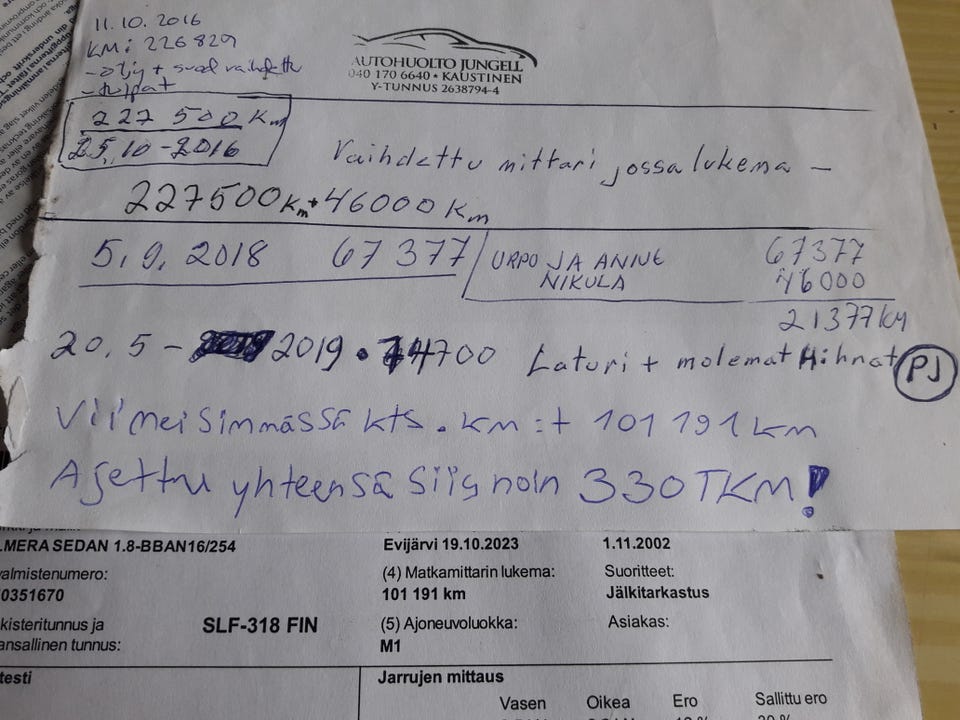 11.10.2016
KM: 226829
AUTOHUOLTO JUNGELL
040 170 6640 • KAUSTINEN
Y-TUNNUS 2638794-4
227 500 Km
25.10-2016
Vaihdettu mittari jossa lukema –
227500 Km + 46000 Km
5.9.2018 67 377
URPO JA ANNE
NIKULA
67377
46000
21377 KM
20.5 - 2019 • 74700 Laturi + molemat Hihnat
PJ
Viimeisimmässä kts. km:t 101 191 km
Ajettu yhteensä siis noin 330 TKM!
LMERA SEDAN 1.8-BBAN16/254
Evijärvi 19.10.2023
1.11.2002
almistenumero:
(4) Matkamittarin lukema:
Suoritteet:
0351670
101 191 km
Jälkitarkastus
kisteritunnus ja
ansallinen tunnus:
SLF-318 FIN
(5) Ajoneuvoluokka:
Asiakas:
M1
testi
Jarrujen mittaus
Vasen Oikea Ero Sallittu ero